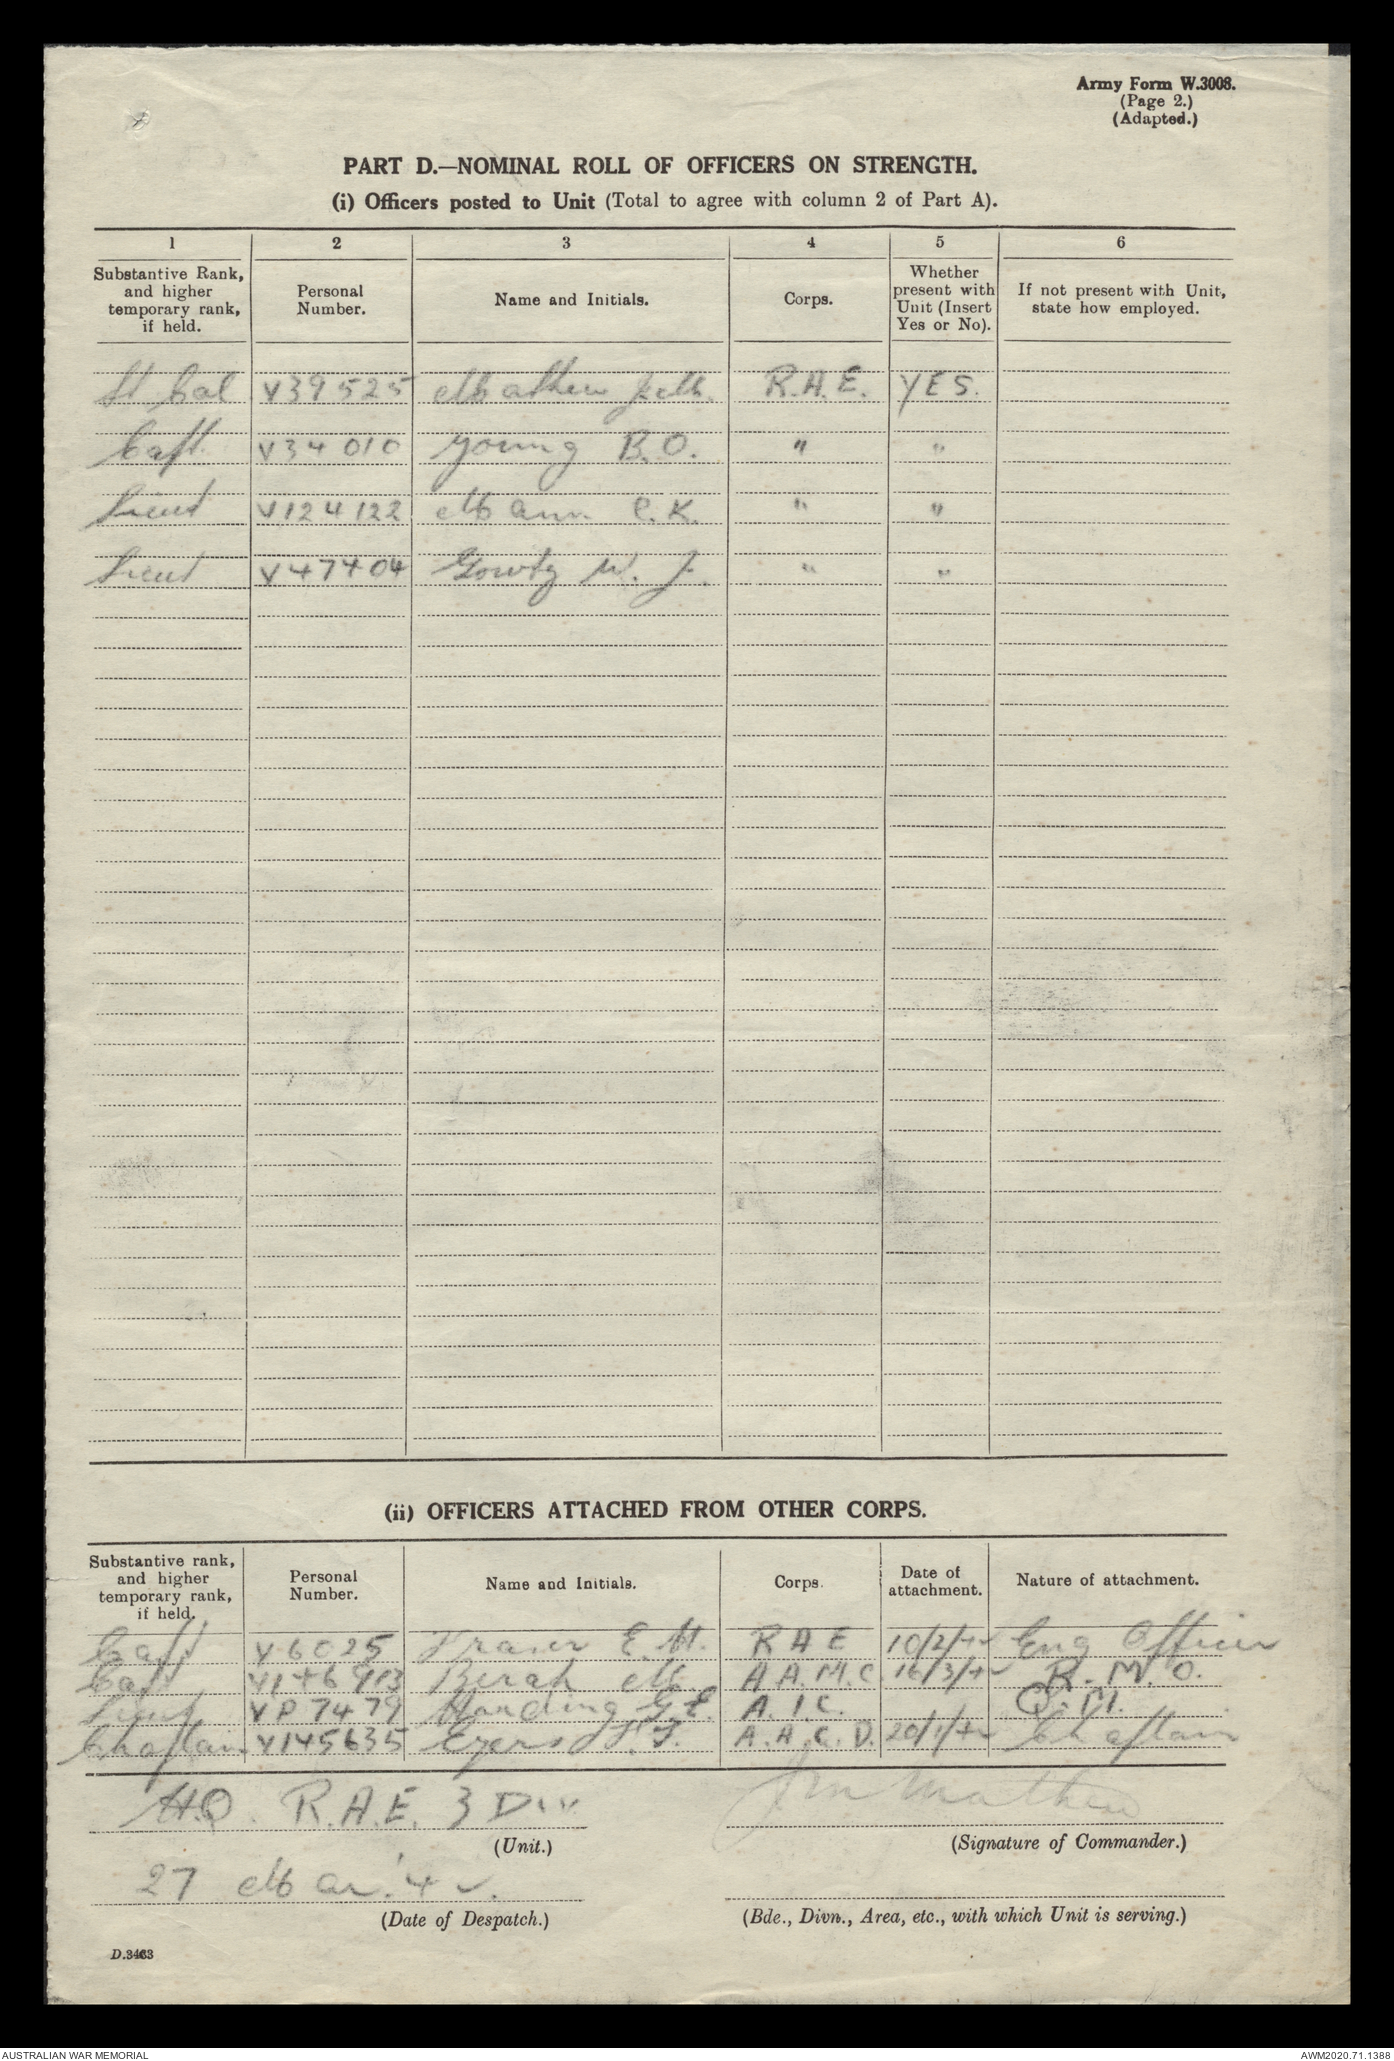 Army Form W.3008.
(Page 2.)
(Adapted.)
PART D.—NOMINAL ROLL OF OFFICERS ON STRENGTH.
(i) Officers posted to Unit (Total to agree with column 2 of Part A).
1 2 3 4 5 6
Substantive Rank, and higher temporary rank, if held. Personal Number. Name and Initials. Corps. Whether present with Unit (Insert Yes or No). If not present with Unit, state how employed.
Lt Col V39525 Mathew J. M. R.A.E. YES.
Capt. V34010 Young B.O. " "
Lieut V124122 Mann C.K. " "
Lieut V47404 Gowty W. J. " "
(ii) OFFICERS ATTACHED FROM OTHER CORPS.
Substantive rank, and higher temporary rank, if held. Personal Number. Name and Initials. Corps. Date of attachment. Nature of attachment.
Capt V6025 Fraser E. H. R A E 10/2/42 Eng Officer
Capt V146913 Berah M. A.A.M.C. 16/3/42 R.M.O.
Lieut VP7479 Harding G.E. A.I.C. Q.M.
Chaplain V145635 Eyers A.A.C.D. 20/1/42 Chaplain
H.Q. R.A.E. 3 Div
(Unit.)
J M Mathew
(Signature of Commander.)
27 Mar. '42.
(Date of Despatch.)
(Bde., Divn., Area, etc., with which Unit is serving.)
D.3463
AUSTRALIAN WAR MEMORIAL
AWM2020.71.1388